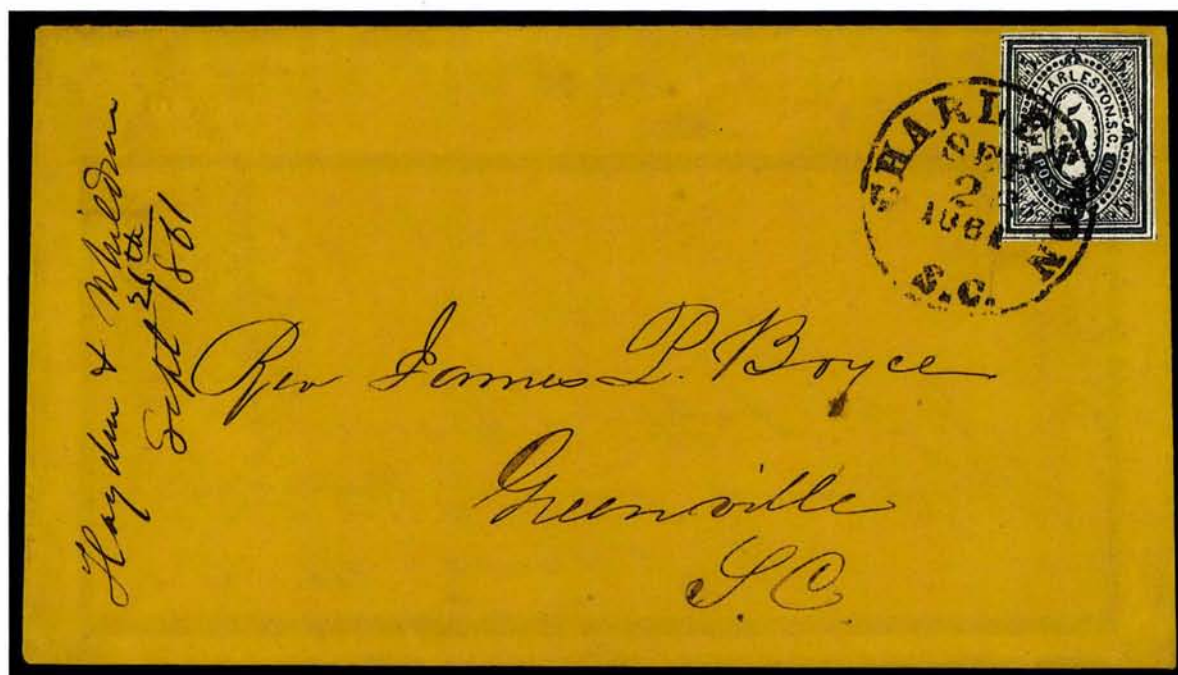 Hayden & Whilden
Sept 26th 1861
CHARLESTON
SEP
2
1861
S.C.
5 5
CHARLESTON. S.C.
5
POST PAID
Rev James P. Boyce
Greenville
S.C